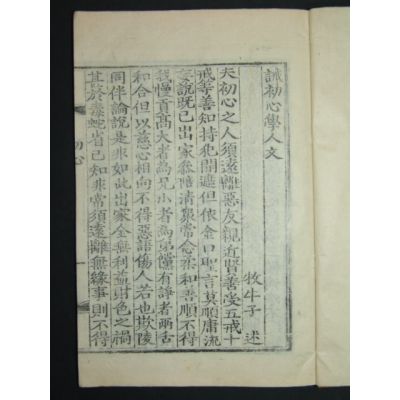 誡初心學人文
牧牛子 述
夫初心之人須遠離惡友親近賢善受五戒十
戒等善知持犯開遮但依金口聖言莫順庸流
妄說旣已出家叅陪清衆常念柔和善順不得
我慢貢高大者為兄小者為弟儻有諍者兩舌
和合但以慈心相向不得惡語傷人若也欺陵
同伴論說是非如此出家全無利益財色之禍
甚於毒蛇省己知非常須遠離無緣事則不得
初心